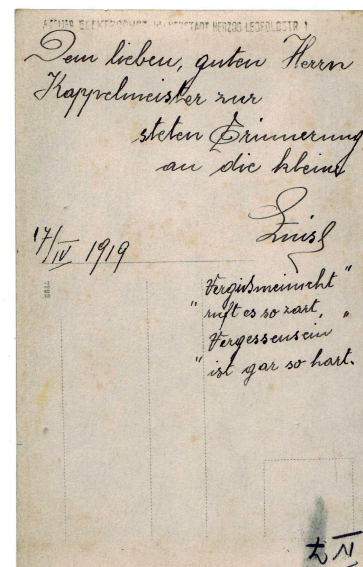 ATELIER ELEKTROPHOT W. NEUSTADT HERZOG LEOPOLDSTR. 1
Dem lieben, guten Herrn
Kappelmeister zur
steten Erinnerung
an die kleine
17/IV 1919
"Vergißmeinnicht"
"ruft es so zart, "
Vergessensein
"ist gar so hart.
IV